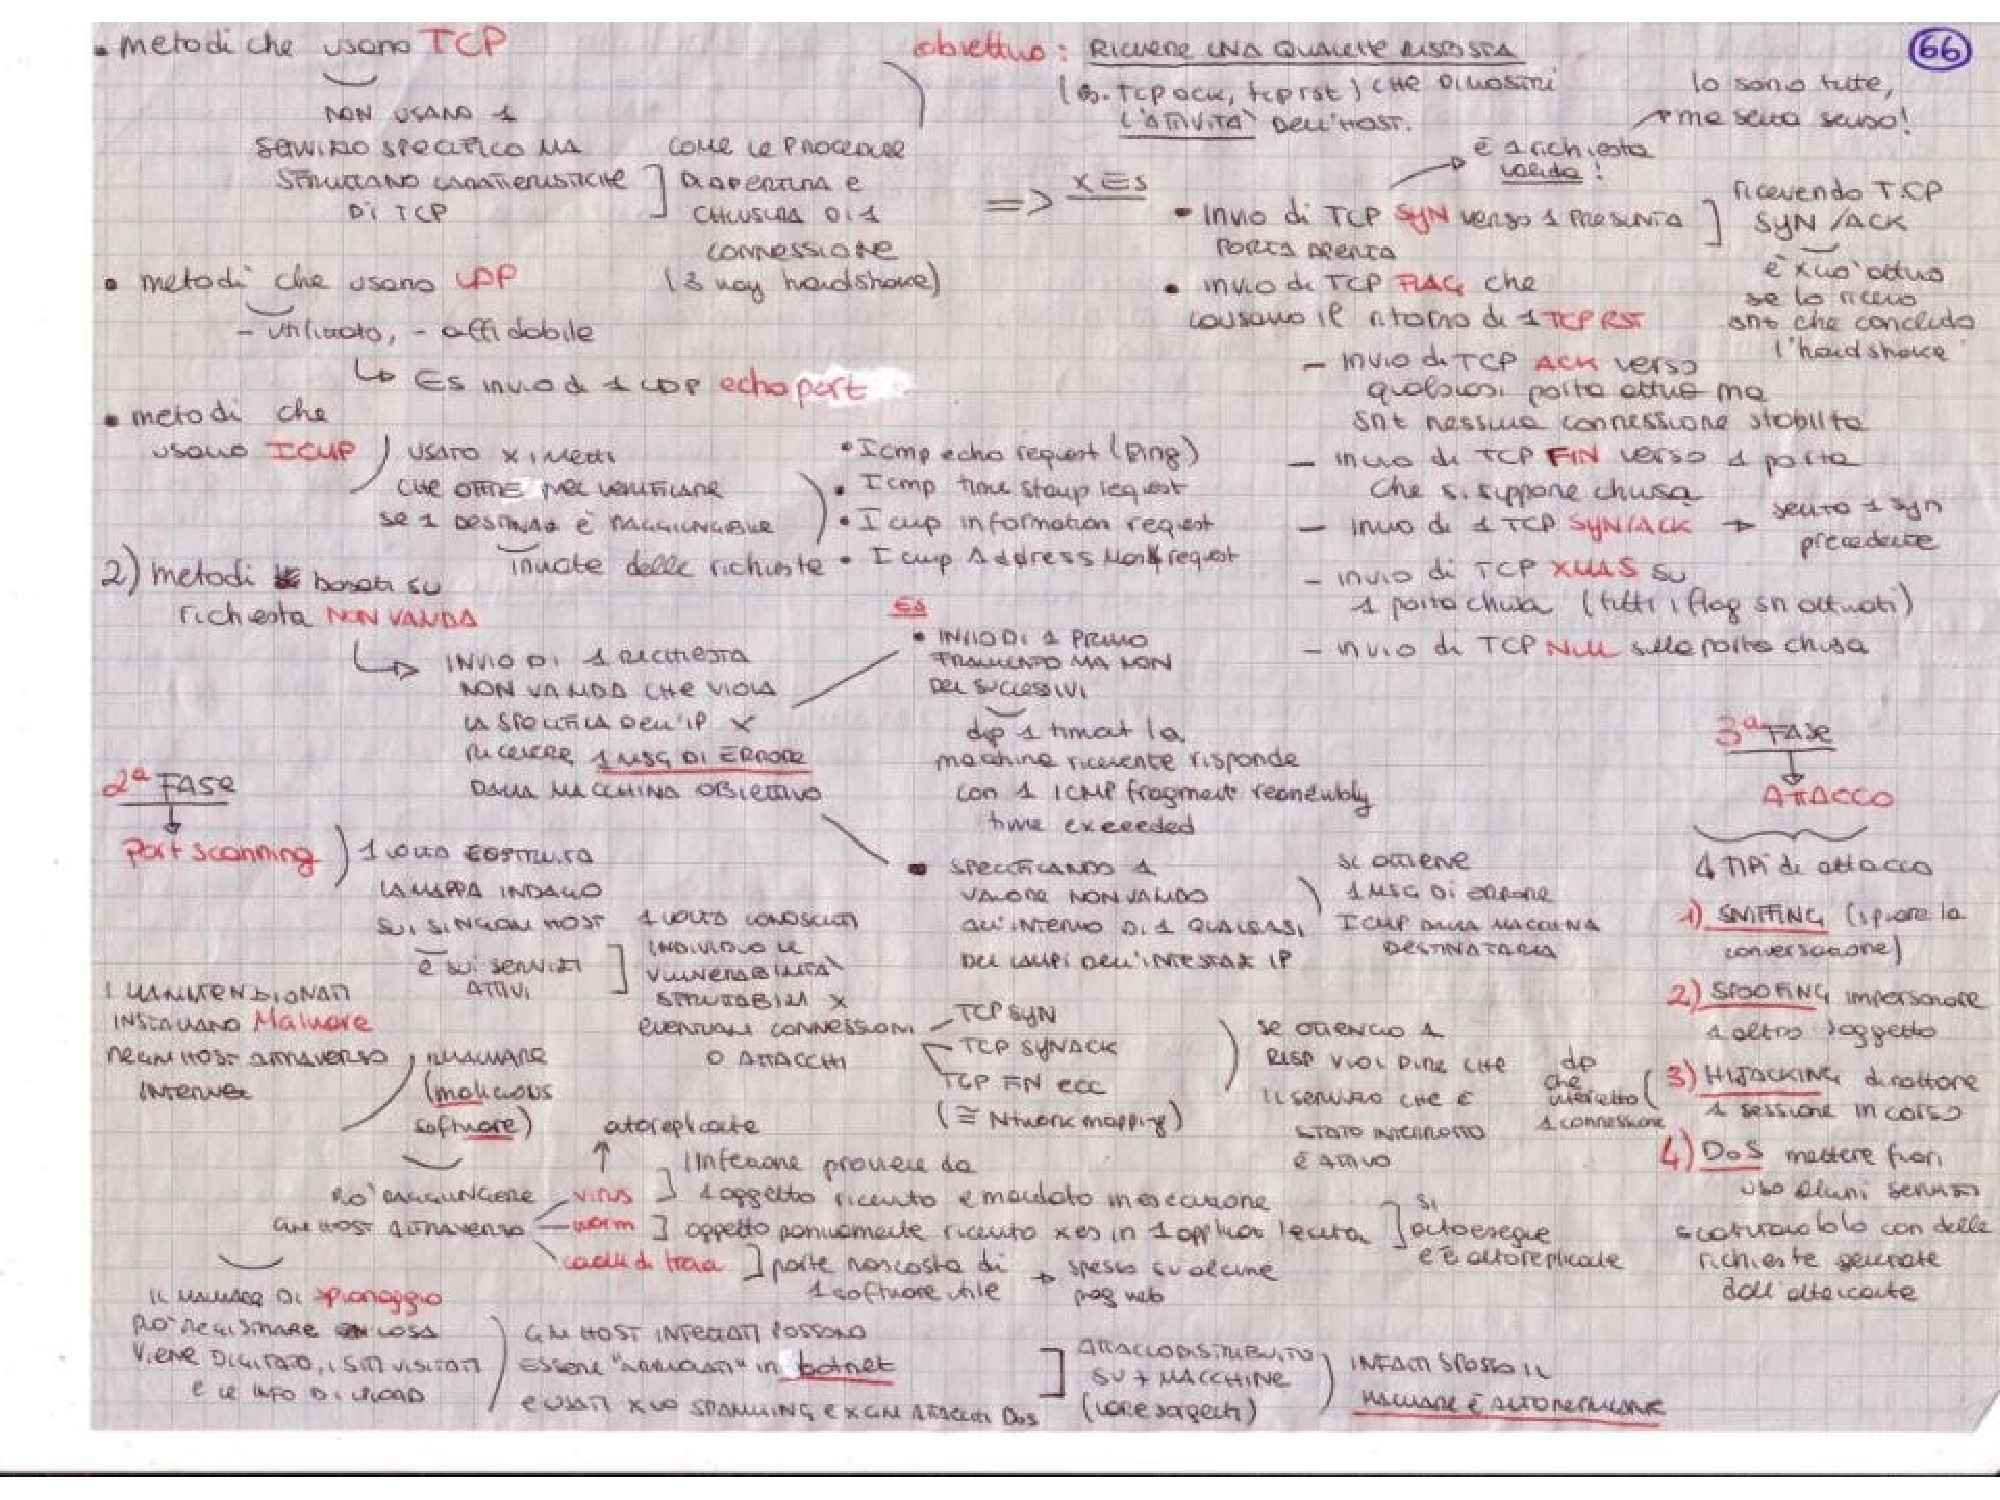 66
• metodi che usano TCP
NON USANO 1
SERVIZIO SPECIFICO MA
SFRUTTANO CARATTERISTICHE
DI TCP
COME LE PROCEDURE
DI APERTURA E
CHIUSURA DI 1
CONNESSIONE
(3 way handshake)
obiettivo: RICEVERE UNA QUALCHE RISPOSTA
(es. TCP ack, tcp rst) CHE DIMOSTRI
L'ATTIVITA' DELL'HOST.
=> X ES
lo sono tutte,
ma senza senso!
è 1 richiesta
valida!
• INVIO di TCP SYN verso 1 PRESUNTA
PORTA APERTA
ricevendo TCP
SYN/ACK
è xuo' attivo
se lo ricevo
snt che concludo
l'handshake
• invio di TCP FLAG che
causano il ritorno di 1 TCP RST
– invio di TCP ACK verso
qualsiasi porta attiva ma
snt nessuna connessione stabilita
– invio di TCP FIN verso 1 porta
che si suppone chiusa
– invio di 1 TCP SYN/ACK → senza 1 syn
precedente
– invio di TCP XMAS su
1 porta chiusa (tutti i flag sn attivati)
– invio di TCP NULL sulla porta chiusa
• metodi che usano UDP
– utilizzato, – affidabile
↳ ES invio di 1 UDP echo port
• metodi che
usano ICMP
USATO X I METODI
CHE OFFRE PER VERIFICARE
SE 1 DESTINAZ È RAGGIUNGIBILE
inviate delle richieste
• Icmp echo request (Ping)
• Icmp time stamp request
• Icmp information request
• Icmp Address Mask request
2) metodi basati su
richiesta NON VALIDA
↳ INVIO DI 1 RICHIESTA
NON VALIDA CHE VIOLA
LA SPECIFICA DELL'IP X
RICEVERE 1 MSG DI ERRORE
DALLA MACCHINA OBIETTIVO
ES
• INVIO DI 1 PRIMO
FRAMMENTO MA NON
DEI SUCCESSIVI
dop 1 timeout la
macchina ricevente risponde
con 1 ICMP fragment reassembly
time exceeded
• SPECIFICANDO 1
VALORE NON VALIDO
ALL'INTERNO DI 1 QUALSIASI
DEI CAMPI DELL'INTESTAZ IP
SI OTTIENE
1 MSG DI ERRORE
ICMP DALLA MACCHINA
DESTINATARIA
2ª FASE
Port scanning
1 VOLTA COSTRUITA
LA MAPPA INDAGO
SUI SINGOLI HOST
E SUI SERVIZI
ATTIVI
1 VOLTA CONOSCIUTI
INDIVIDUO LE
VULNERABILITA'
SFRUTTABILI X
EVENTUALI CONNESSIONI
O ATTACCHI
TCP SYN
TCP SYNACK
TCP FIN ECC
(≅ Network mapping)
SE OTTENGO 1
RISP VUOL DIRE CHE
IL SERVIZIO CHE È
STATO INTERROTTO
È ATTIVO
dp
che
intercetto
1 connessione
3ª FASE
ATTACCO
4 TIPI di attacco
1) SNIFFING (spiare la
conversazione)
2) SPOOFING impersonare
1 altro soggetto
3) HIJACKING dirottare
1 sessione in corso
4) DoS mettere fuori
uso alcuni servizi
scaturandolo con delle
richieste generate
dall'attaccante
I MALINTENZIONATI
INSTALLANO Malware
NEGLI HOST ATTRAVERSO
INTERNET
MALWARE
(malicious
software)
PO' RAGGIUNGERE
GLI HOST ATTRAVERSO
autoreplicante
virus
l'infezione proviene da
1 oggetto ricevuto e mandato in esecuzione
worm ] oggetto passivamente ricevuto x es in 1 applicaz lecita
si
autoesegue
e è autoreplicante
cavalli di troia ] parte nascosta di
1 software utile
→ spesso su alcune
pag web
IL MALWARE DI spionaggio
PO' REGISTRARE COSA
VIENE DIGITATO, I SITI VISITATI
E LE INFO DI UPLOAD
GLI HOST INFETTATI POSSONO
ESSERE "ARRUOLATI" in botnet
E USATI X LO SPAMMING E X GLI ATTACCHI DoS
ATTACCO DISTRIBUITO
SU + MACCHINE
(
INFATTI SPESSO IL
MALWARE È AUTOREPLICANTE